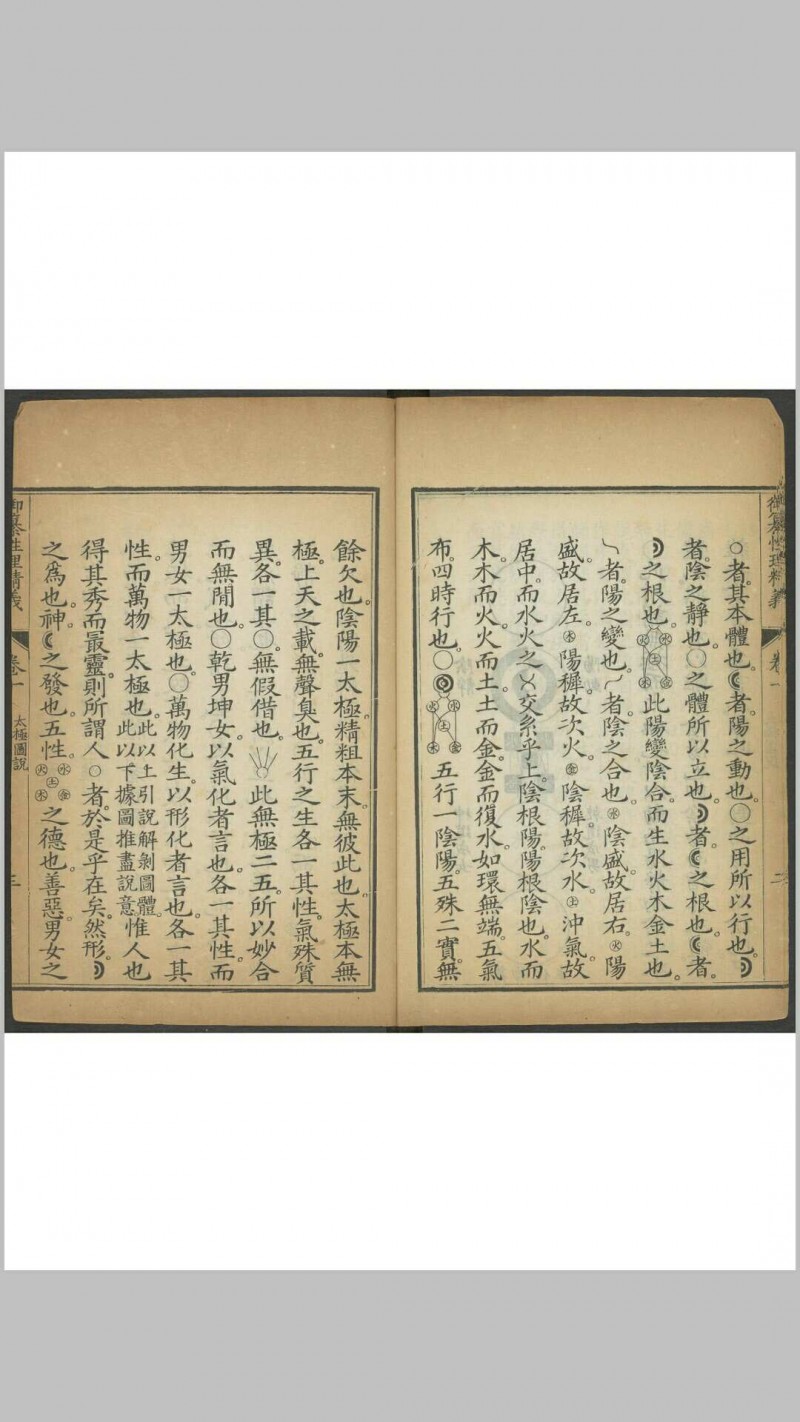 御纂性理精義 卷一 二
○者。其本體也。☾者。陽之動也。○之用所以行也。☽
者。陰之靜也。○之體所以立也。☽者。☾之根也。☾者。
☽之根也。㊌㊋㊏㊍㊎此陽變陰合。而生水火木金土也。
㇏者。陽之變也。㇒者。陰之合也。㊌陰盛。故居右。㊋陽
盛。故居左。㊍陽穉。故次火。㊎陰穉。故次水。㊏沖氣。故
居中。而水火之㐅交系乎上。陰根陽。陽根陰也。水而
木。木而火。火而土。土而金。金而復水。如環無端。五氣
布。四時行也。○◎㊋㊌㊏㊍㊎五行一陰陽。五殊二實。無
餘欠也。陰陽一太極。精粗本末。無彼此也。太極本無
極。上天之載。無聲臭也。五行之生。各一其性。氣殊質
異。各一其○。無假借也。此無極二五。所以妙合
而無閒也。○乾男坤女。以氣化者言也。各一其性。而
男女一太極也。○萬物化生。以形化者言也。各一其
性。而萬物一太極也。此以上引說解剝圖體。此以下據圖推盡說意。惟人也
得其秀而最靈。則所謂人○者。於是乎在矣。然形。☽
之爲也。神。☾之發也。五性。㊌㊋㊏㊎㊍之德也。善惡。男女之
御纂性理精義 卷一 太極圖說 三